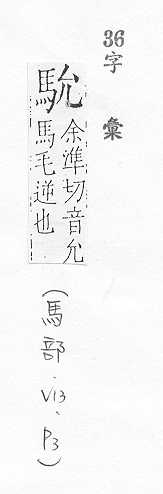 36字彙
馬允 余準切音允
馬毛逆也
（馬部、V13、P3）